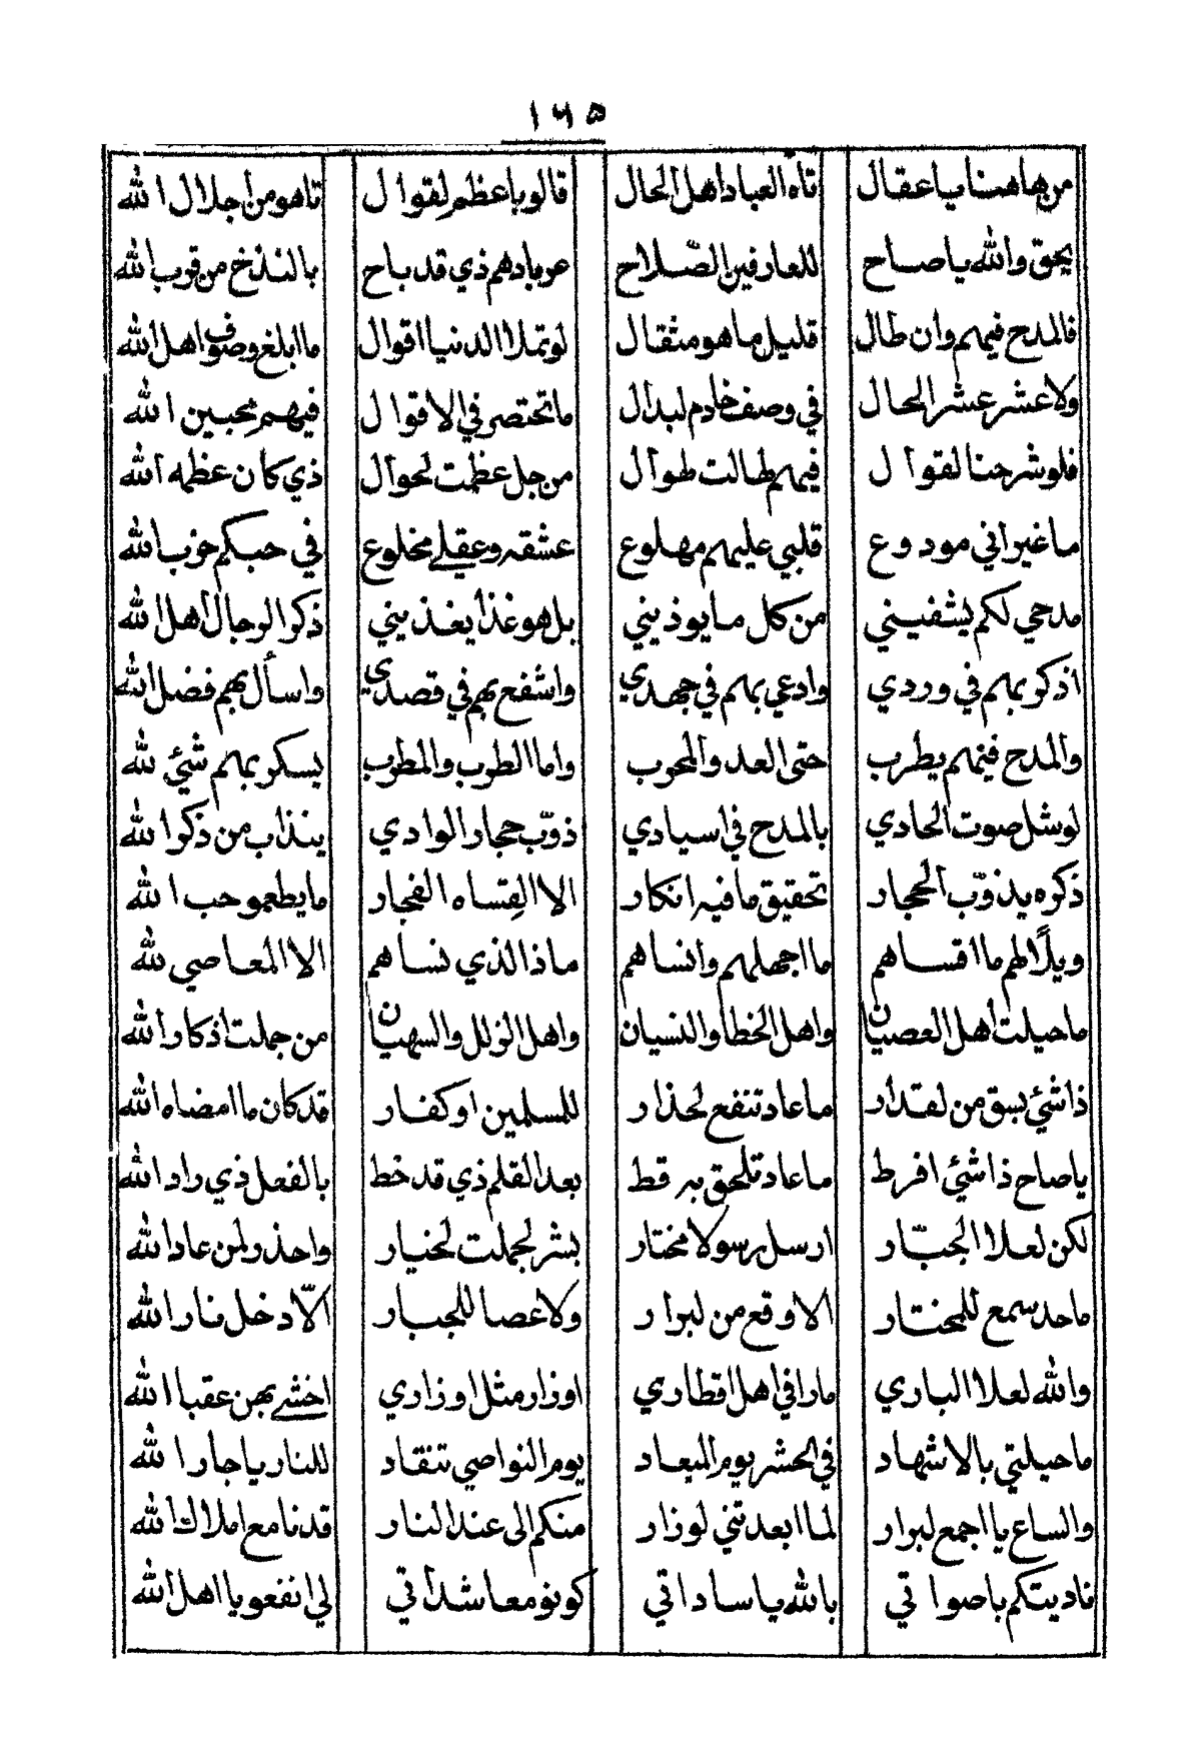 ١٦٥
من هاهنا يا عقال تاه العباد اهل الحال قالو باعظم لقوال تاهو من اجلال الله
يحق والله يا صاح للعارفين الصّلاح عربادهم ذي قد باح بالنذخ من قرب الله
فالمدح فيهم وان طال قليل ما هو مثقال لو تملا الدنيا اقوال ما ابلغ وصوف اهل الله
ولا عشر عشر الحال في وصف خادم لبدال ما تختصر في الاقوال فيهم محبين الله
فلو شرحنا لقوال فيهم طالت طوال من جل عظمت لحوال ذي كان عظمه الله
ما غير اني مودوع قلبي عليهم مهلوع عشقه وعقلي مخلوع في حبكم حزب الله
مدحي لكم يشفيني من كل ما يوذيني بل هو غذا يغذيني ذكر الرجال اهل الله
اذكر بهم في وردي وادعي بهم في جهدي واشفع بهم في قصدي واسأل بهم فضل الله
والمدح فيهم يطرب حتى العدو المحرب واما الطرب والمطرب يسكر بهم شئ لله
لو شل صوت الحادي بالمدح في اسيادي ذوّب حجار الوادي ينذاب من ذكر الله
ذكره يذوّب الحجار تحقيق ما فيه انكار الا القساه الفجار ما يطعمو حب الله
ويلاً لهم ما اقساهم ما اجهلهم وانساهم ماذا الذي نساهم الا المعاصي لله
ما حيلت أهل العصيان واهل الخطا والنسيان واهل الزلل والسهيان من جملت اذكار الله
ذا شئ بسق من لقدار ما عاد تنفع لحذار للمسلمين او كفار قد كان ما امضاه الله
يا صاح ذا شئ افرط ما عاد تلحق به قط بعد القلم ذي قد خط بالفعل ذي راد الله
لكن لعلا الجبّار ارسل رسولا مختار بشر لجملت لخيار واحذر لمن عاد الله
ما حد سمع للمختار الا وقع من لبرار ولا عصا للجبار الّا دخل نار الله
والله لعلا الباري ما رافي اهل اقطاري اوزار مثل اوزاري اخشى بهن عقبا الله
ما حيلتي بالاشهاد في الحشر يوم الميعاد يوم النواصي تنقاد للنار يا جار الله
والساع يا اجمع لبرار لما ابعدتني لوزار منكم الى عند النار قدنا مع املاك الله
ناديتكم باصواتي بالله يا ساداتي كونو معا شداتي لي انفعو يا اهل الله